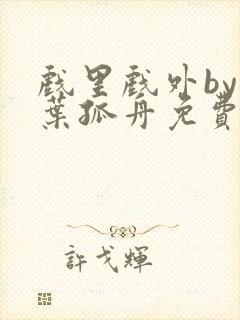 戲里戲外by
葉孤舟免費
許戈輝